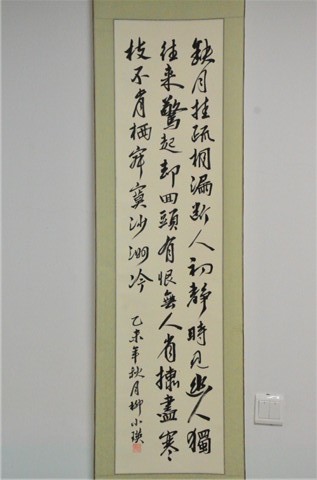 缺月挂疏桐漏断人初静時见幽人獨
往来驚起却回頭有恨無人省揀盡寒
枝不肯栖寂寞沙洲冷
乙未年秋月柳小